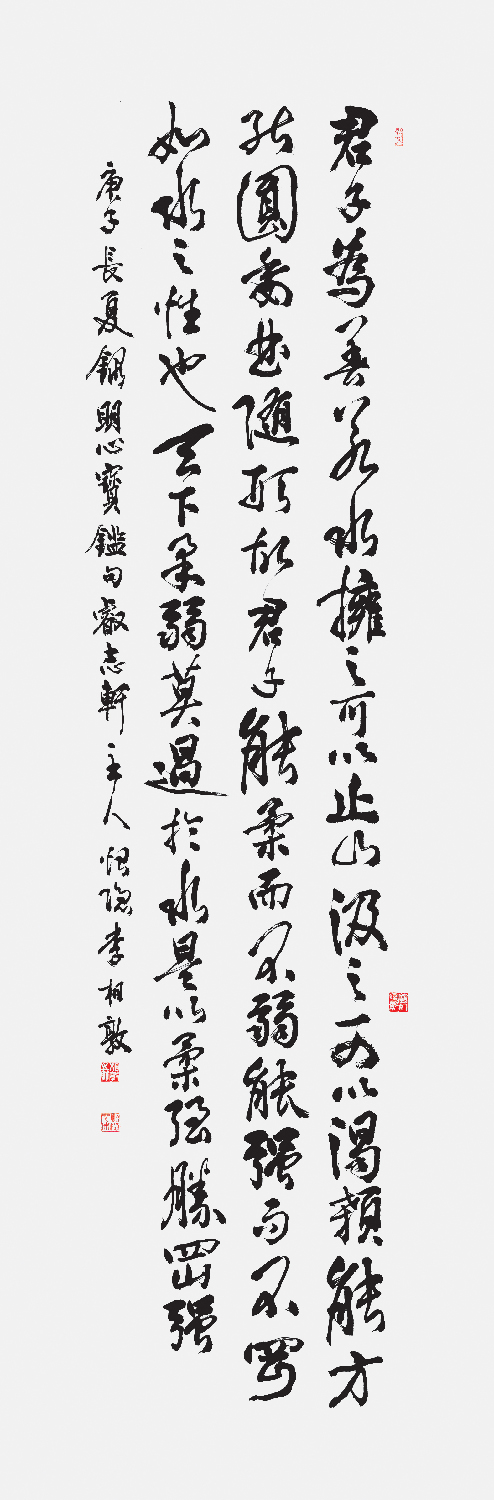 君子為善若水擁之可以止山汲之可以渴顙能方
能圓委曲隨形故君子能柔而不弱能强而不岡
如水之性也天下柔弱莫過於水是以柔弱勝岡强
庚子長夏錄明心寶鑑句叡志軒主人李相敦